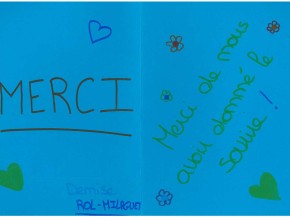 MERCI
Denise
Merci de nous
avoir donné le
sourire !